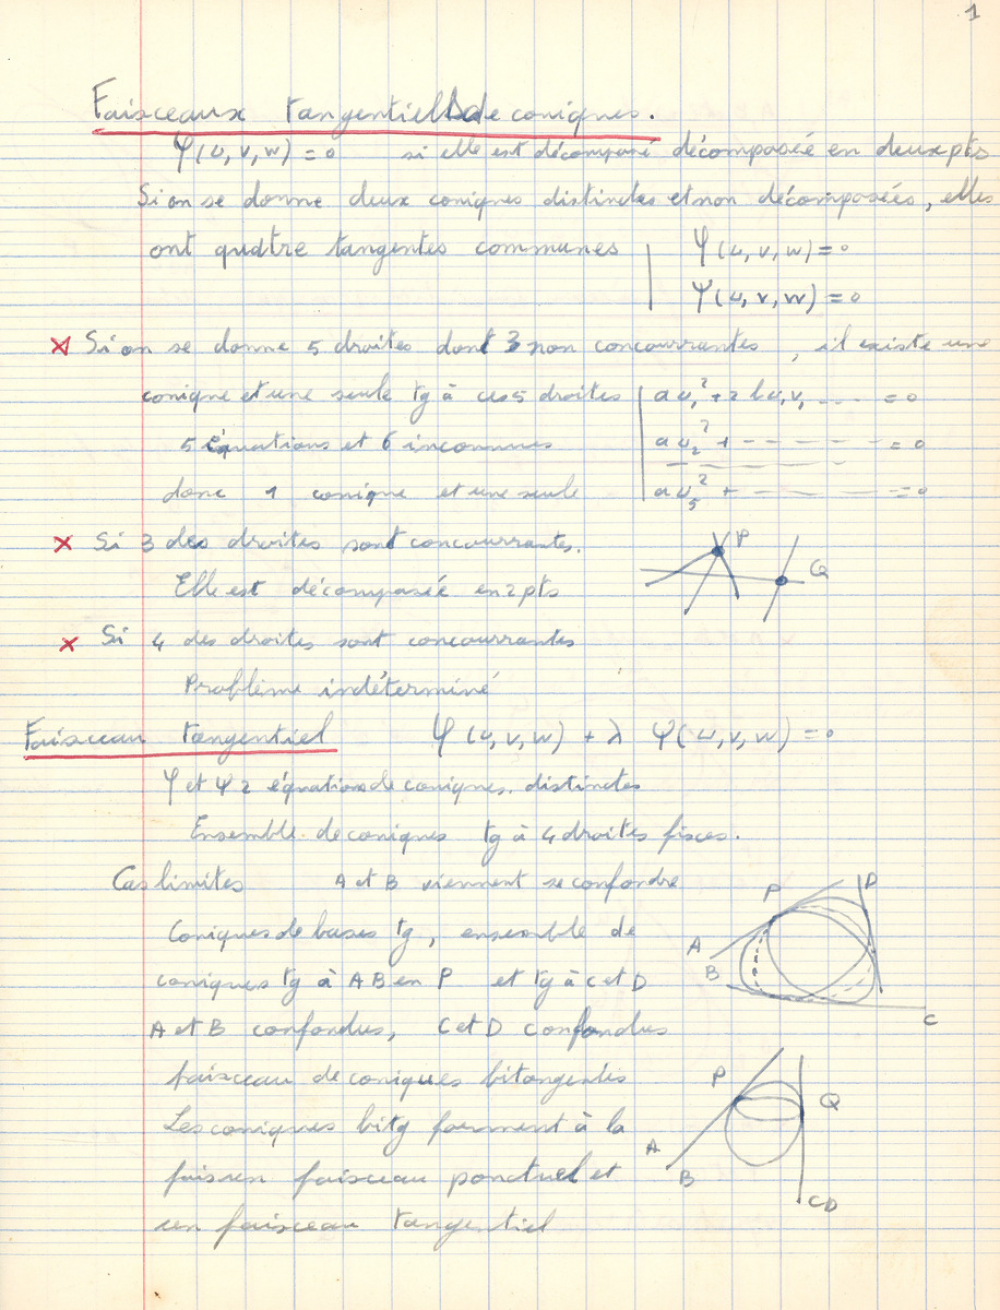 1
Faisceaux tangentiels de coniques.
φ(u,v,w) = 0 si elle est décomposé décomposée en deux pts
Si on se donne deux coniques distinctes et non décomposées, elles
ont quatre tangentes communes φ(u,v,w) = 0
Ψ(u,v,w) = 0
x Si on se donne 5 droites dont 3 non concourrantes, il existe une
conique et une seule tg à ces 5 droites au₁² + 2bu₁v₁ ---- = 0
5 équations et 6 inconnues au₂² + ------ = 0
donc 1 conique et une seule au₅² + ------ = 0
x Si 3 des droites sont concourrantes. P
Elle est décomposée en 2 pts Q
x Si 4 des droites sont concourrantes
Problème indéterminé
Faisceau tangentiel φ(u,v,w) + λ Ψ(u,v,w) = 0
φ et Ψ 2 équations de coniques. distinctes
Ensemble de coniques tg à 4 droites fixes.
Cas limites A et B viennent se confondre P D
Coniques de bases tg, ensemble de A
coniques tg à AB en P et tg à C et D B
A et B confondus, C et D confondus C
faisceau de coniques bitangentes P
Les coniques bitg forment à la Q
fois un faisceau ponctuel et A B
un faisceau tangentiel CD